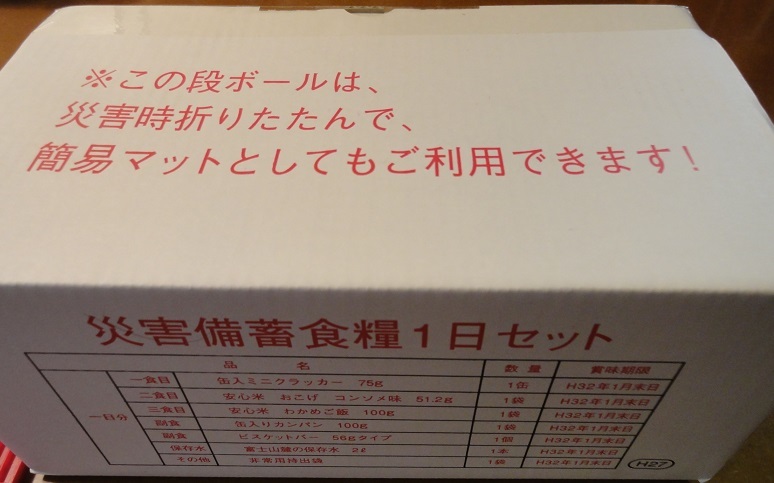 ※この段ボールは、
災害時折りたたんで、
簡易マットとしてもご利用できます!
災害備蓄食糧1日セット
品 名 数量 賞味期限
一日分
一食目 缶入ミニクラッカー 75g 1缶 H32年1月末日
二食目 安心米 おこげ コンソメ味 51.2g 1袋 H32年1月末日
三食目 安心米 わかめご飯 100g 1袋 H32年1月末日
副食 缶入りカンパン 100g 1袋 H32年1月末日
副食 ビスケットバー 56gタイプ 1個 H32年1月末日
保存水 富士山麓の保存水 2ℓ 1本 H32年1月末日
その他 非常用持出袋 1袋 H32年1月末日
H27